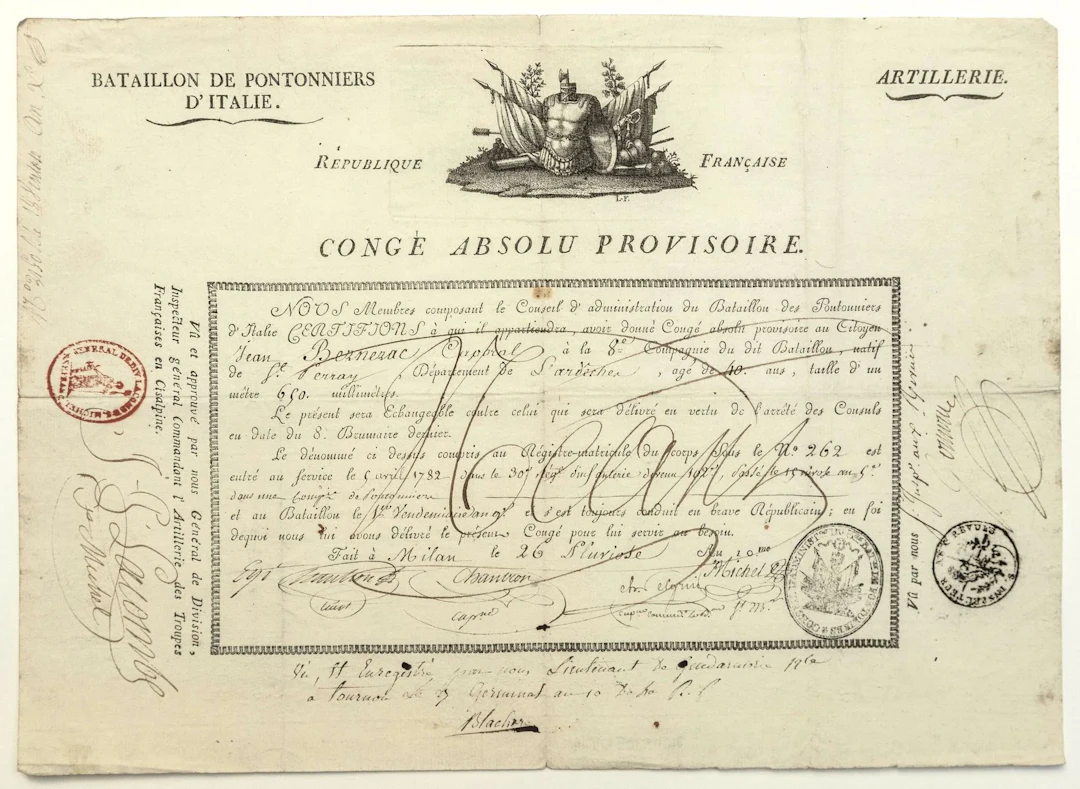 BATAILLON DE PONTONNIERS
D'ITALIE.
ARTILLERIE.
RÉPUBLIQUE FRANÇAISE
L.F.
CONGÉ ABSOLU PROVISOIRE.
NOUS Membres composant le Conseil d'administration du Bataillon des Pontonniers
d'Italie CERTIFIONS à qui il appartiendra, avoir donné Congé absolu provisoire au Citoyen
Jean Bernezac Capporal à la 8me Compagnie du dit Bataillon, natif
de St. Perray Département de L'ardèche, agé de 40. ans, taille d'un
mètre 650. millimètres.
Le présent sera Echangeable contre celui qui sera délivré en vertu de l'arrêté des Consuls
en date du 8. Brumaire dernier.
Le dénommé ci dessus compris au Régistre-matricule du corps sous le No. 262 est
entré au service le 5 avril 1782 dans le 30e. régt. d'infanterie devenu 102e., passé le 15 nivose an 5e.
dans une Compie. de pontonniers
et au Bataillon le 1er Vendemiaire an 9e. et s'est toujours conduit en brave Républicain; en foi
dequoi nous lui avons délivré le présent Congé pour lui servir au besoin.
Fait à Milan le 26 Pluviose An 10me
Chanron
Michel
Capne.
Vu et approuvé par nous Général de Division,
Inspecteur général Commandant l'Artillerie des Troupes
Françaises en Cisalpine.
Lacombe
St. Michel
Vu par nous
INSPECTEUR AUX REVUES
Vu, et Enregistré par nous Lieutenant de Gendarmerie Nle
a tournon le Germinal an 10 de la R. f
Blachere